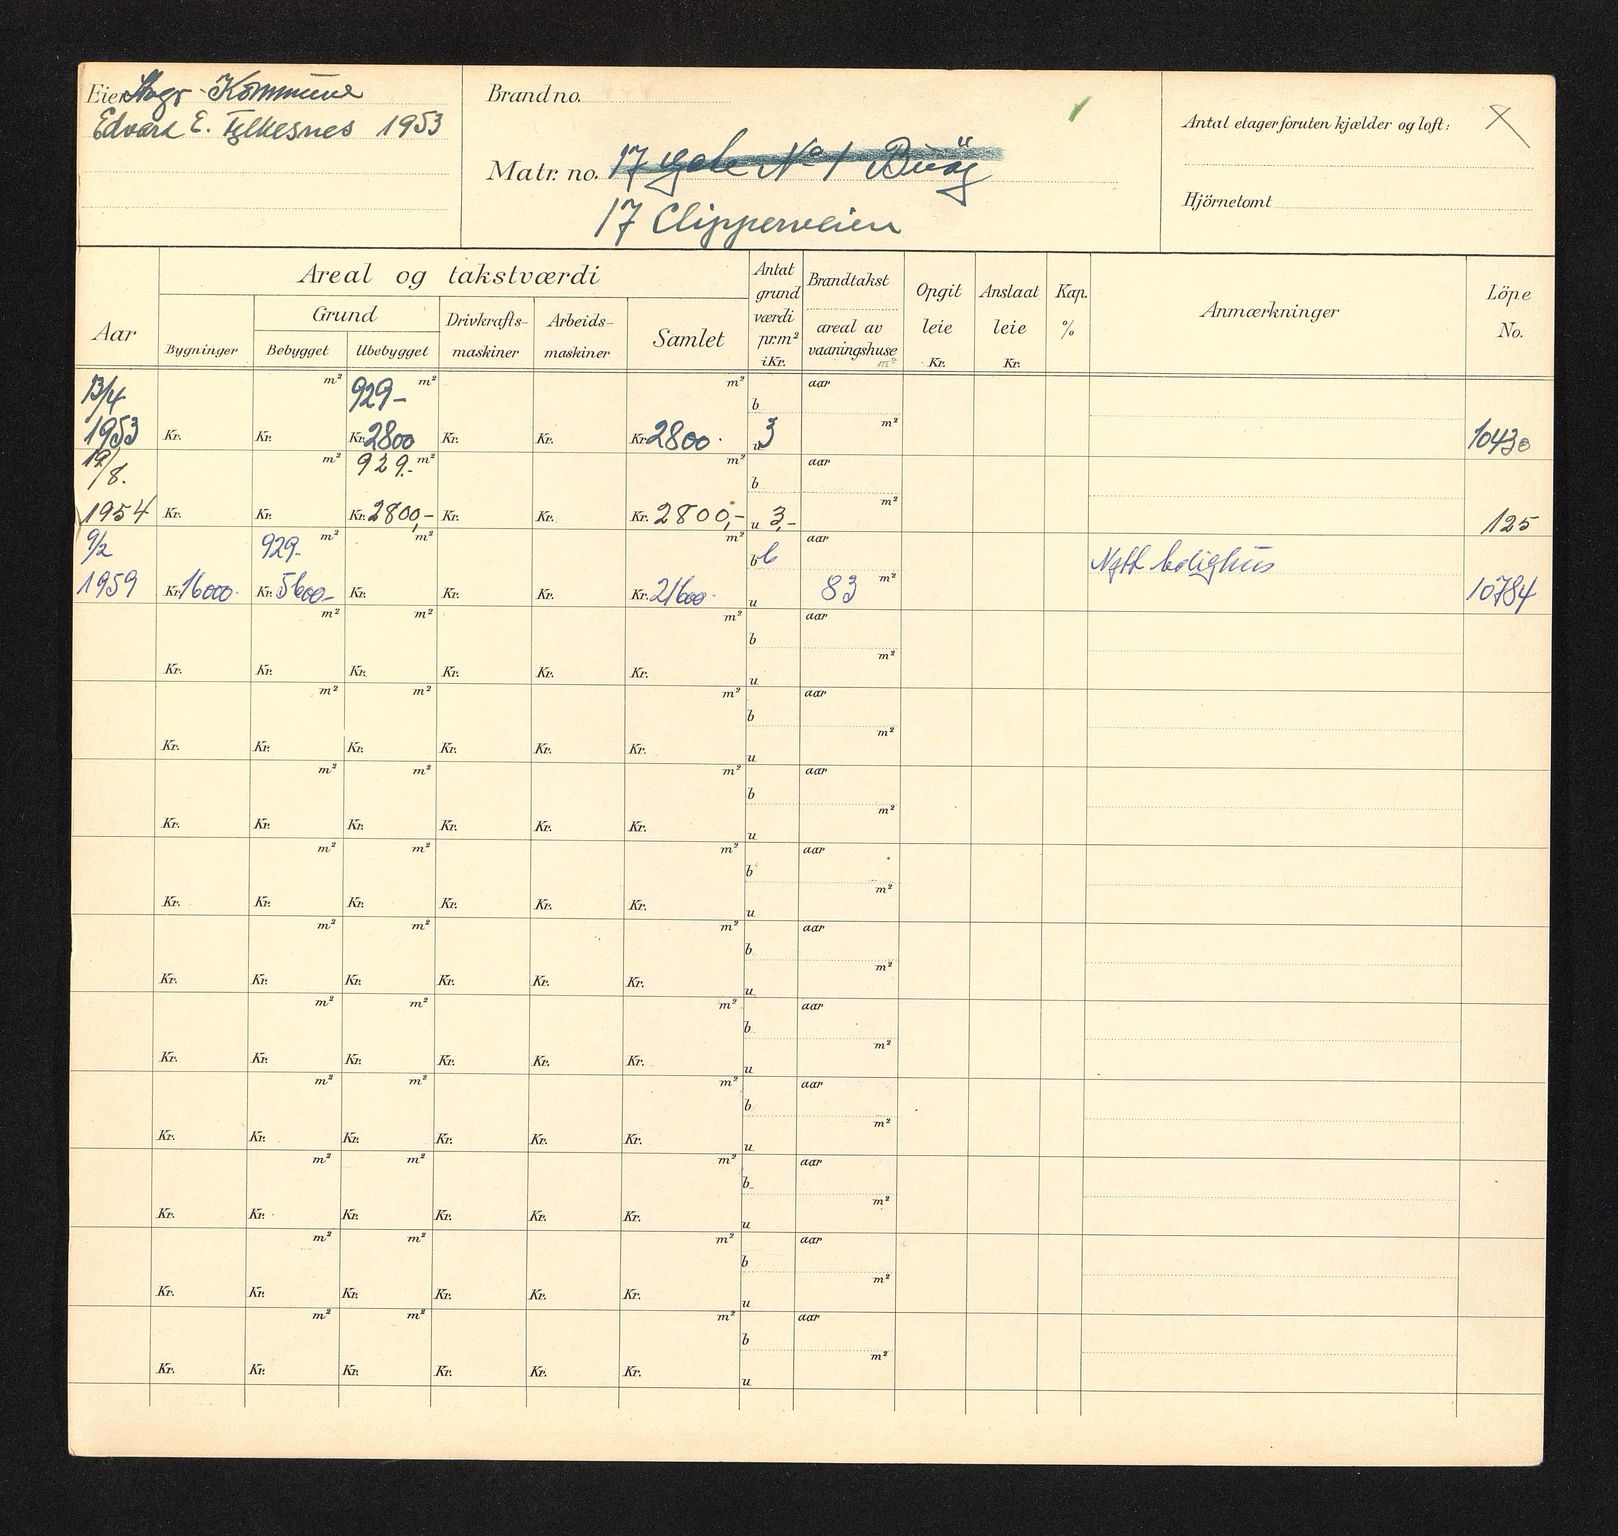 Eier Stvgr. Kommune
Edvard E. Fylkesnes 1953
Brand no.
Matr. no. 17 gate No 1 Buøy
17 Clipperveien
Antal etager foruten kjælder og loft:
Hjörnetomt
Aar
Areal og takstværdi
Bygninger
Grund
Bebygget
Ubebygget
Drivkrafts-
maskiner
Arbeids-
maskiner
Samlet
Antat
grund
værdi
pr.m²
i Kr.
Brandtakst
areal av
vaaningshuse
m²
Opgit
leie
Kr.
Anslaat
leie
Kr.
Kap.
%
Anmærkninger
Löpe
No.
13/4 m² 929- m² m² b aar
1953 Kr. Kr. Kr. 2800 Kr. Kr. Kr. 2800. u 3 m² 10430
12/8. m² 929.- m² m² b aar
1954 Kr. Kr. Kr. 2800,- Kr. Kr. Kr. 2800,- u 3,- m² 125
9/2 929. m² m² m² b 6 aar Nytt bolighus
1959 Kr. 16000. Kr. 5600.- Kr. Kr. Kr. Kr. 21600. u 83 m² 10784
m² m² m² b aar
Kr. Kr. Kr. Kr. Kr. Kr. u m²
m² m² m² b aar
Kr. Kr. Kr. Kr. Kr. Kr. u m²
m² m² m² b aar
Kr. Kr. Kr. Kr. Kr. Kr. u m²
m² m² m² b aar
Kr. Kr. Kr. Kr. Kr. Kr. u m²
m² m² m² b aar
Kr. Kr. Kr. Kr. Kr. Kr. u m²
m² m² m² b aar
Kr. Kr. Kr. Kr. Kr. Kr. u m²
m² m² m² b aar
Kr. Kr. Kr. Kr. Kr. Kr. u m²
m² m² m² b aar
Kr. Kr. Kr. Kr. Kr. Kr. u m²
m² m² m² b aar
Kr. Kr. Kr. Kr. Kr. Kr. u m²
m² m² m² b aar
Kr. Kr. Kr. Kr. Kr. Kr. u m²